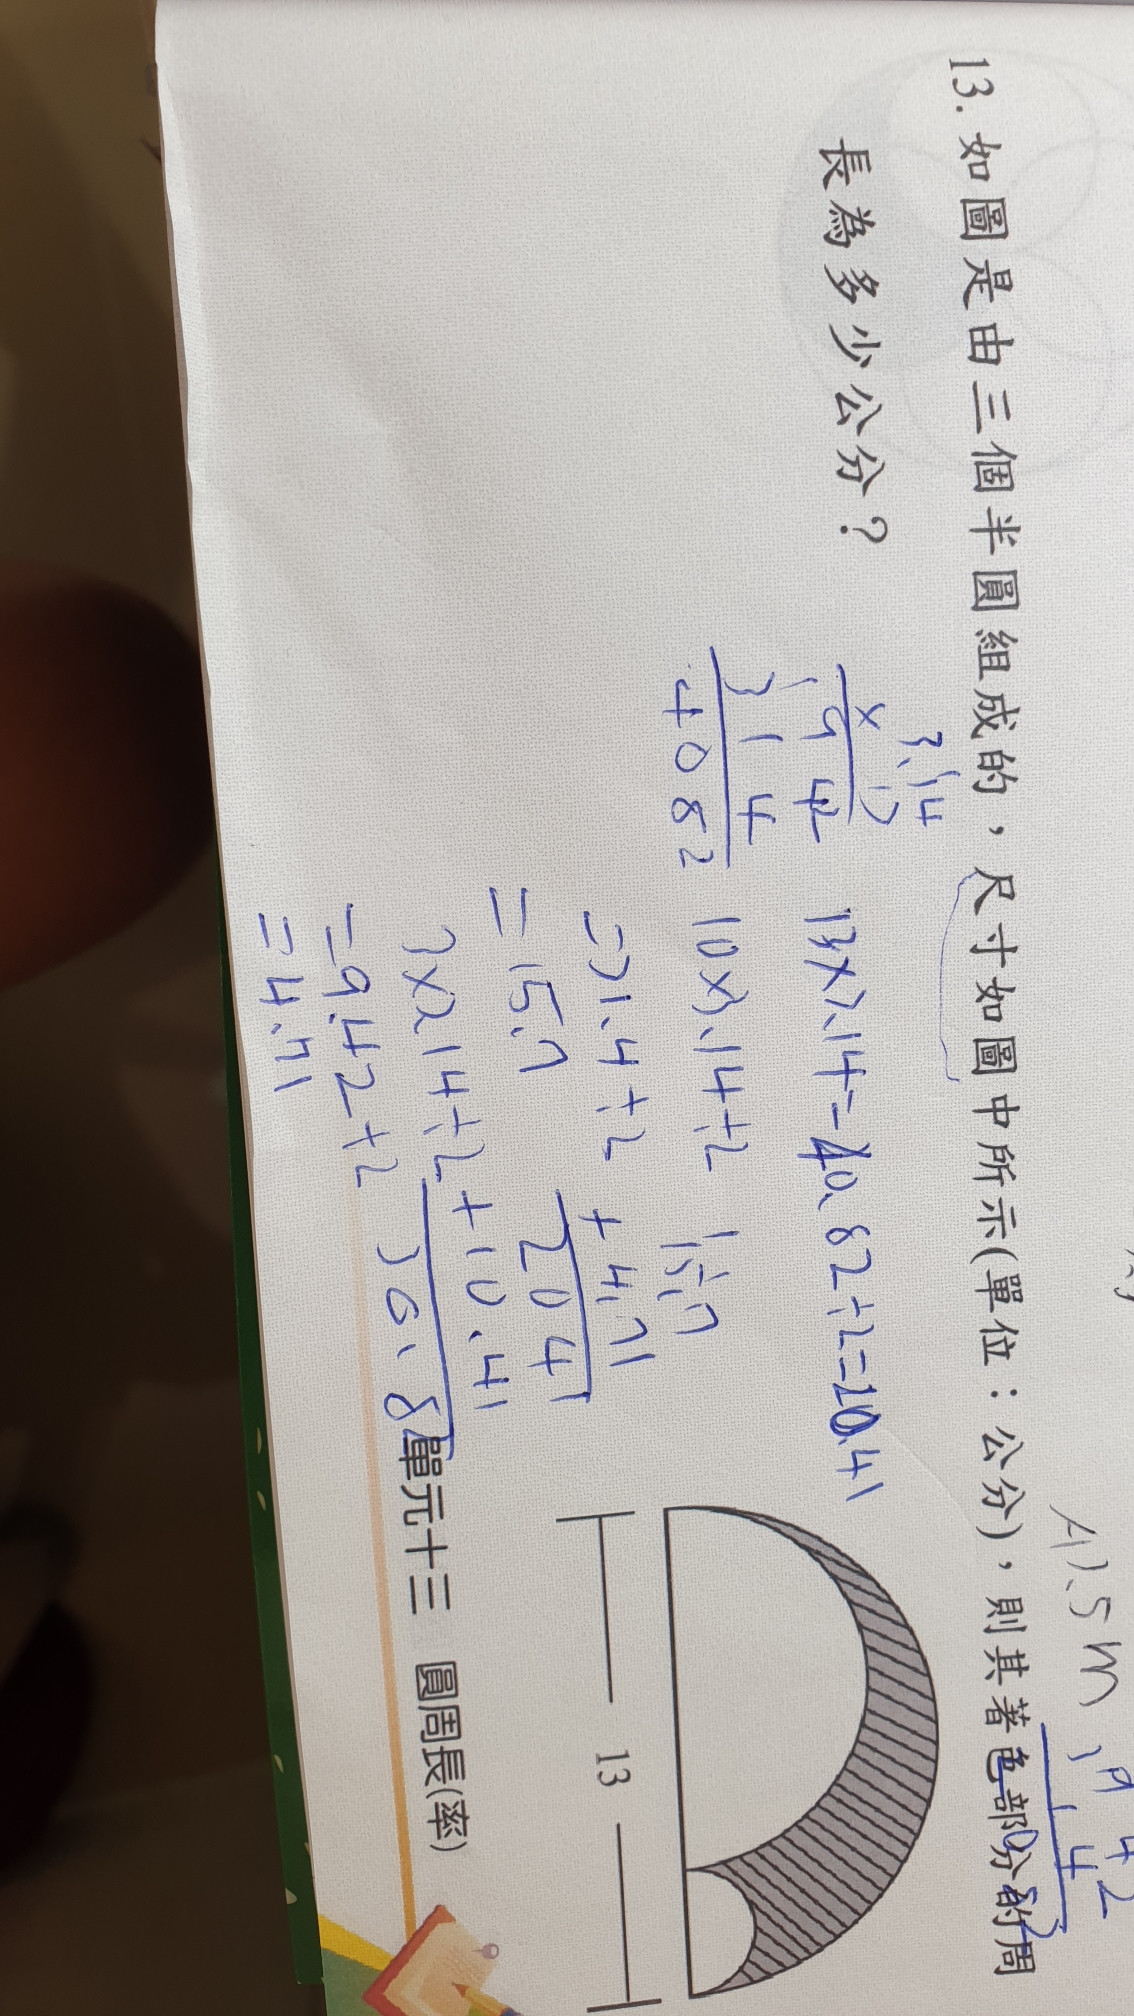 13. 如圖是由三個半圓組成的，尺寸如圖中所示(單位：公分)，則其著色部分的周
長為多少公分？
3.14
13×3.14=40.82÷2=20.41
10×3.14÷2
=31.4÷2
=15.7
3×3.14÷2
=9.42÷2
=4.71
15.7
+4.71
2041
13
單元十三 圓周長(率)